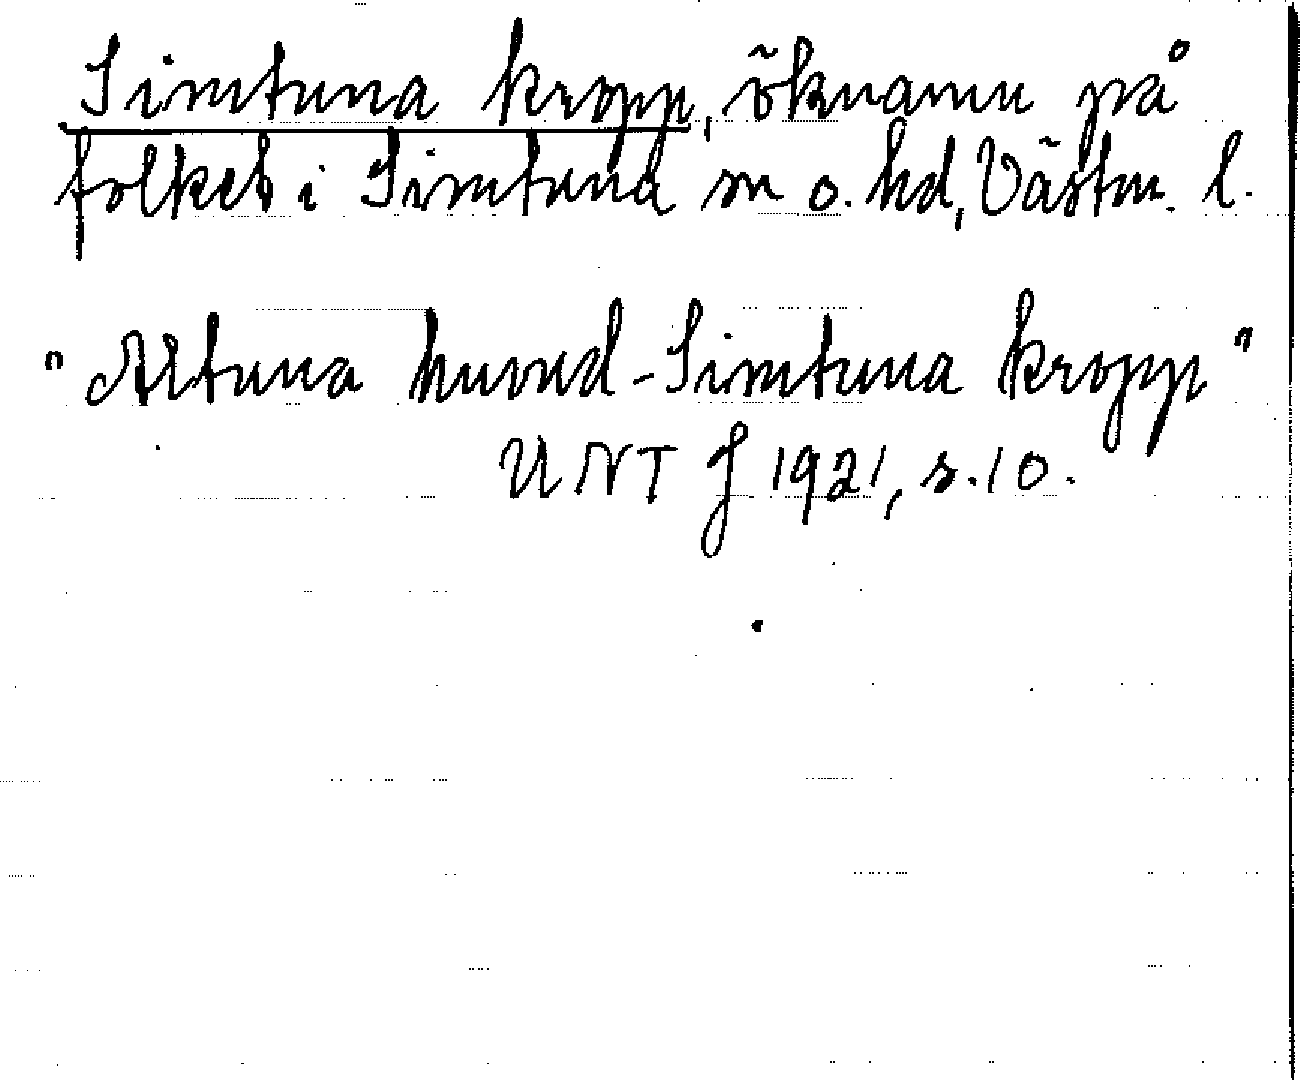 Simtuna kropp, öknamn på
folket i Simtuna sn o. hd, Västm. l.
"Altuna huvud - Simtuna kropp"
UNT J 1921, s. 10.